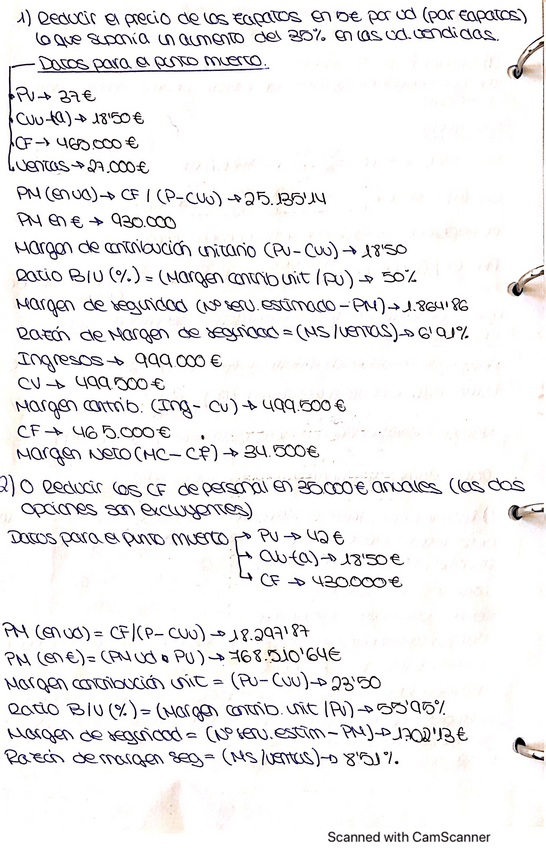 1) Reducir el precio de los zapatos en 5€ por ud (par zapatos)
lo que suponía un aumento del 35% en las ud. vendidas.
Datos para el punto muerto.
PV → 37€
CVU-(a) → 18'50€
CF → 465.000€
Ventas → 27.000€
PM (en ud) → CF / (P-CVU) → 25.135'14
PM en € → 930.000
Margen de contribución unitario (PV-CVU) → 18'50
Ratio B/V (%) = (Margen contrib unit / PV) → 50%
Margen de seguridad (Nº serv. estimado - PM) → 1.864'86
Razón de Margen de seguridad = (MS / ventas) → 6'91%
Ingresos → 999.000€
CV → 499.500€
Margen contrib. (Ing - CV) → 499.500€
CF → 465.000€
Margen Neto (MC - CF) → 34.500€
2) O Reducir los CF de personal en 35.000€ anuales (las dos
opciones son excluyentes)
Datos para el punto muerto → PV → 42€
→ CVU-(a) → 18'50€
→ CF → 430.000€
PM (en ud) = CF / (P-CVU) → 18.297'87
PM (en €) = (PM ud • PV) → 768.510'64€
Margen contribución unit = (PV-CVU) → 23'50
Ratio B/V (%) = (Margen contrib. unit / PV) → 55'95%
Margen de seguridad = (Nº serv. estim - PM) → 1702'13€
Razón de margen seg = (MS / ventas) → 8'51%.
Scanned with CamScanner